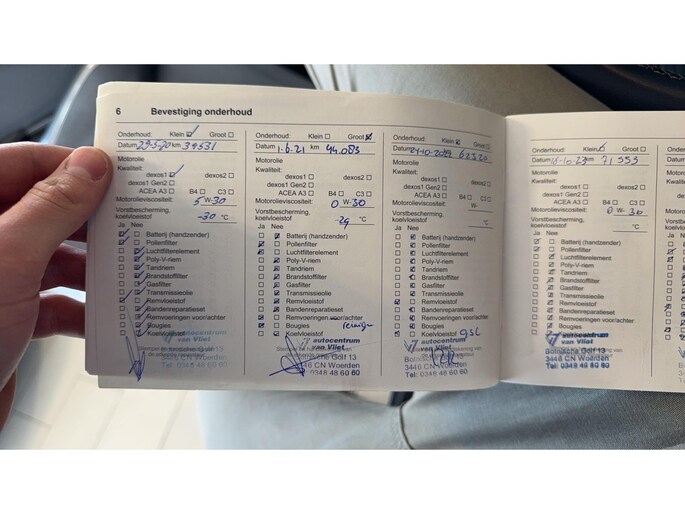 6 Bevestiging onderhoud
Onderhoud: Klein Groot
Datum 29-5-20 km 34531
Motorolie
Kwaliteit:
dexos1 dexos2
dexos1 Gen2
ACEA A3 B4 C3
Motorolieviscositeit: 5 W-30
Vorstbescherming,
koelvloeistof -30 °C
Ja Nee
Batterij (handzender)
Pollenfilter
Luchtfilterelement
Poly-V-riem
Tandriem
Brandstoffilter
Gasfilter
Transmissieolie
Remvloeistof
Bandenreparatieset
Remvoeringen voor/achter
Bougies
Koelvloeistof
autocentrum
van Vliet
Botnische Golf 13
3446 CN Woerden
Tel: 0348 48 60 60
Onderhoud: Klein Groot
Datum 1-6-21 km 44.083
Motorolie
Kwaliteit:
dexos1 dexos2
dexos1 Gen2
ACEA A3 B4 C3
Motorolieviscositeit: 0 W-30
Vorstbescherming,
koelvloeistof -29 °C
Ja Nee
Batterij (handzender)
Pollenfilter
Luchtfilterelement
Poly-V-riem
Tandriem
Brandstoffilter
Gasfilter
Transmissieolie
Remvloeistof
Bandenreparatieset
Remvoeringen voor/achter
Bougies
Koelvloeistof
autocentrum
van Vliet
Botnische Golf 13
3446 CN Woerden
0348 48 60 60
Onderhoud: Klein Groot
Datum km
Motorolie
Kwaliteit:
dexos1 dexos2
dexos1 Gen2
ACEA A3 B4 C3
Motorolieviscositeit: W-
Vorstbescherming,
koelvloeistof °C
Ja Nee
Batterij (handzender)
Pollenfilter
Luchtfilterelement
Poly-V-riem
Tandriem
Brandstoffilter
Gasfilter
Transmissieolie
Remvloeistof
Bandenreparatieset
Remvoeringen voor/achter
Bougies
Koelvloeistof
autocentrum
van Vliet
Botnische Golf 13
3446 CN Woerden
Tel: 0348 48 60 60
Onderhoud: Klein Groot
Datum 18-10-23 km 71555
Motorolie
Kwaliteit:
dexos1 dexos2
dexos1 Gen2
ACEA A3 B4 C3
Motorolieviscositeit: 0 W-30
Vorstbescherming,
koelvloeistof °C
Ja Nee
Batterij (handzender)
Pollenfilter
Luchtfilterelement
Poly-V-riem
Tandriem
Brandstoffilter
Gasfilter
Transmissieolie
Remvloeistof
Bandenreparatieset
Remvoeringen voor/achter
Bougies
Koelvloeistof
autocentrum
van Vliet
Botnische Golf 13
3446 CN Woerden
Tel: 0348 48 60 60